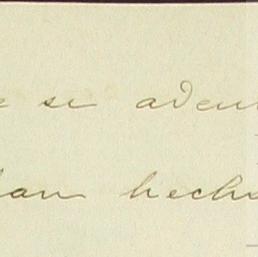 e se aden
han hecho